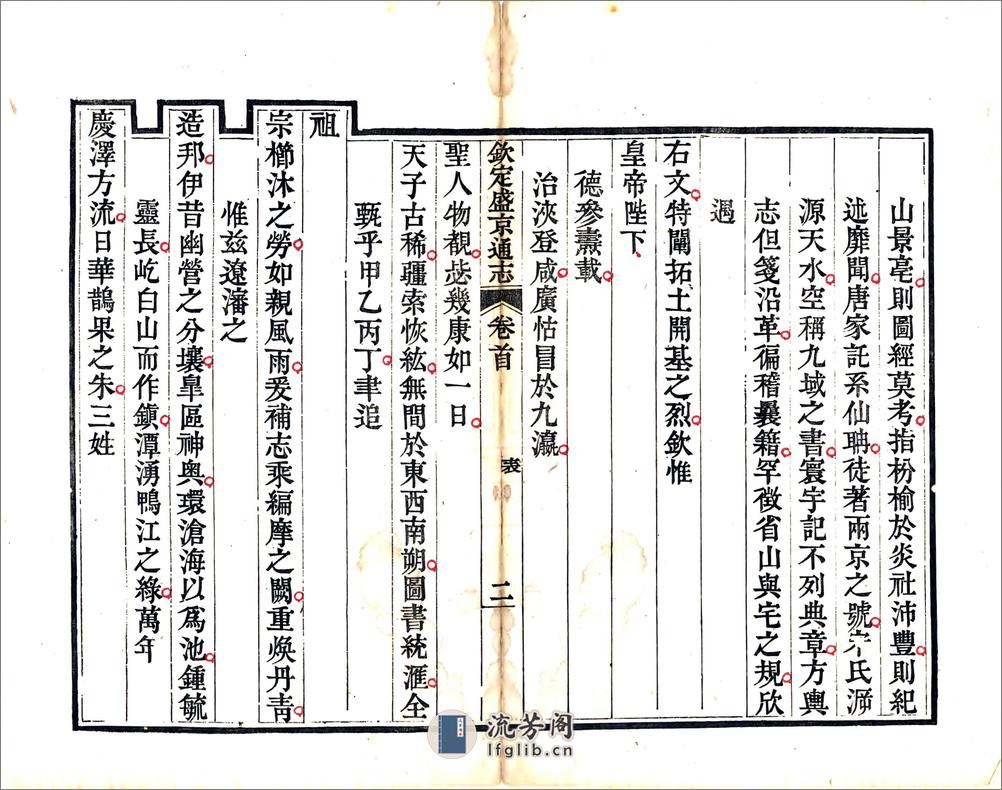 山景亳則圖經莫考指枌榆於炎社沛豐則紀
述靡聞唐家託系仙聃徒著兩京之號宋氏溯
源天水空稱九域之書寰宇記不列典章方輿
志但箋沿革徧稽曩籍罕徵省山與宅之規欣
遇
右文特闡拓土開基之烈欽惟
皇帝陛下
德參燾載
治浹登咸廣怙冒於九瀛
欽定盛京通志 卷首 表 二
聖人物覩惎幾康如一日
天子古稀疆索恢紘無間於東西南朔圖書統滙全
甄乎甲乙丙丁聿追
祖
宗櫛沐之勞如親風雨爰補志乘編摩之闕重煥丹青
惟茲遼瀋之
造邦伊昔幽營之分壤皐區神奧環滄海以爲池鍾毓
靈長屹白山而作鎭潭湧鴨江之綠萬年
慶澤方流日華鵲果之朱三姓
流芳阁
lfglib.cn